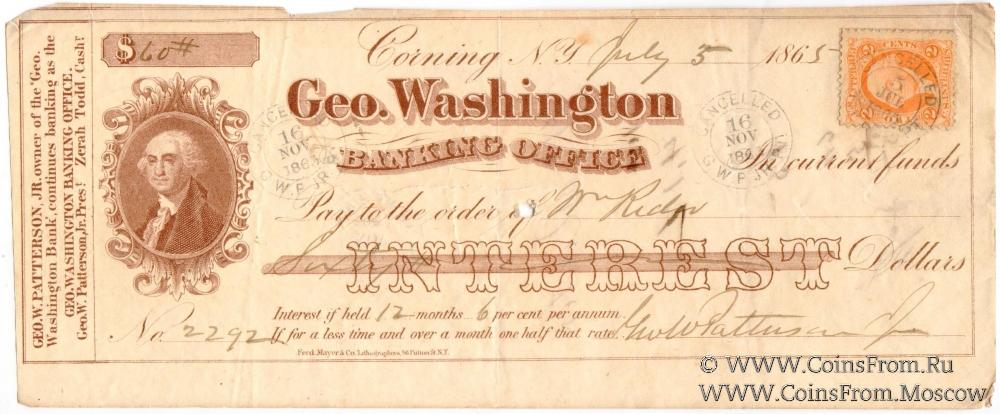 GEO.W. PATTERSON, JR. owner of the "Geo.
Washington Bank", continues banking as the
GEO. WASHINGTON BANKING OFFICE.
Geo.W. Patterson, Jr. Pres! Zerah Todd, Cash!
$60
Corning N.Y. July 5 1865
2 CENTS 2
Geo. Washington
BANKING OFFICE
CANCELLED
16
NOV
186
G.W.P. JR
CANCELLED
16
NOV
G.W.P. JR
In current funds
Pay to the order of Wm
INTEREST
Sixty Dollars
Interest if held 12 months 6 per cent per annum.
If for a less time and over a month one half that rate.
No. 2292
Geo W Patterson Jr
Ferd. Mayer & Co. Lithographers, 96 Fulton St. N.Y.
© WWW.CoinsFrom.Ru
WWW.CoinsFrom.Moscow